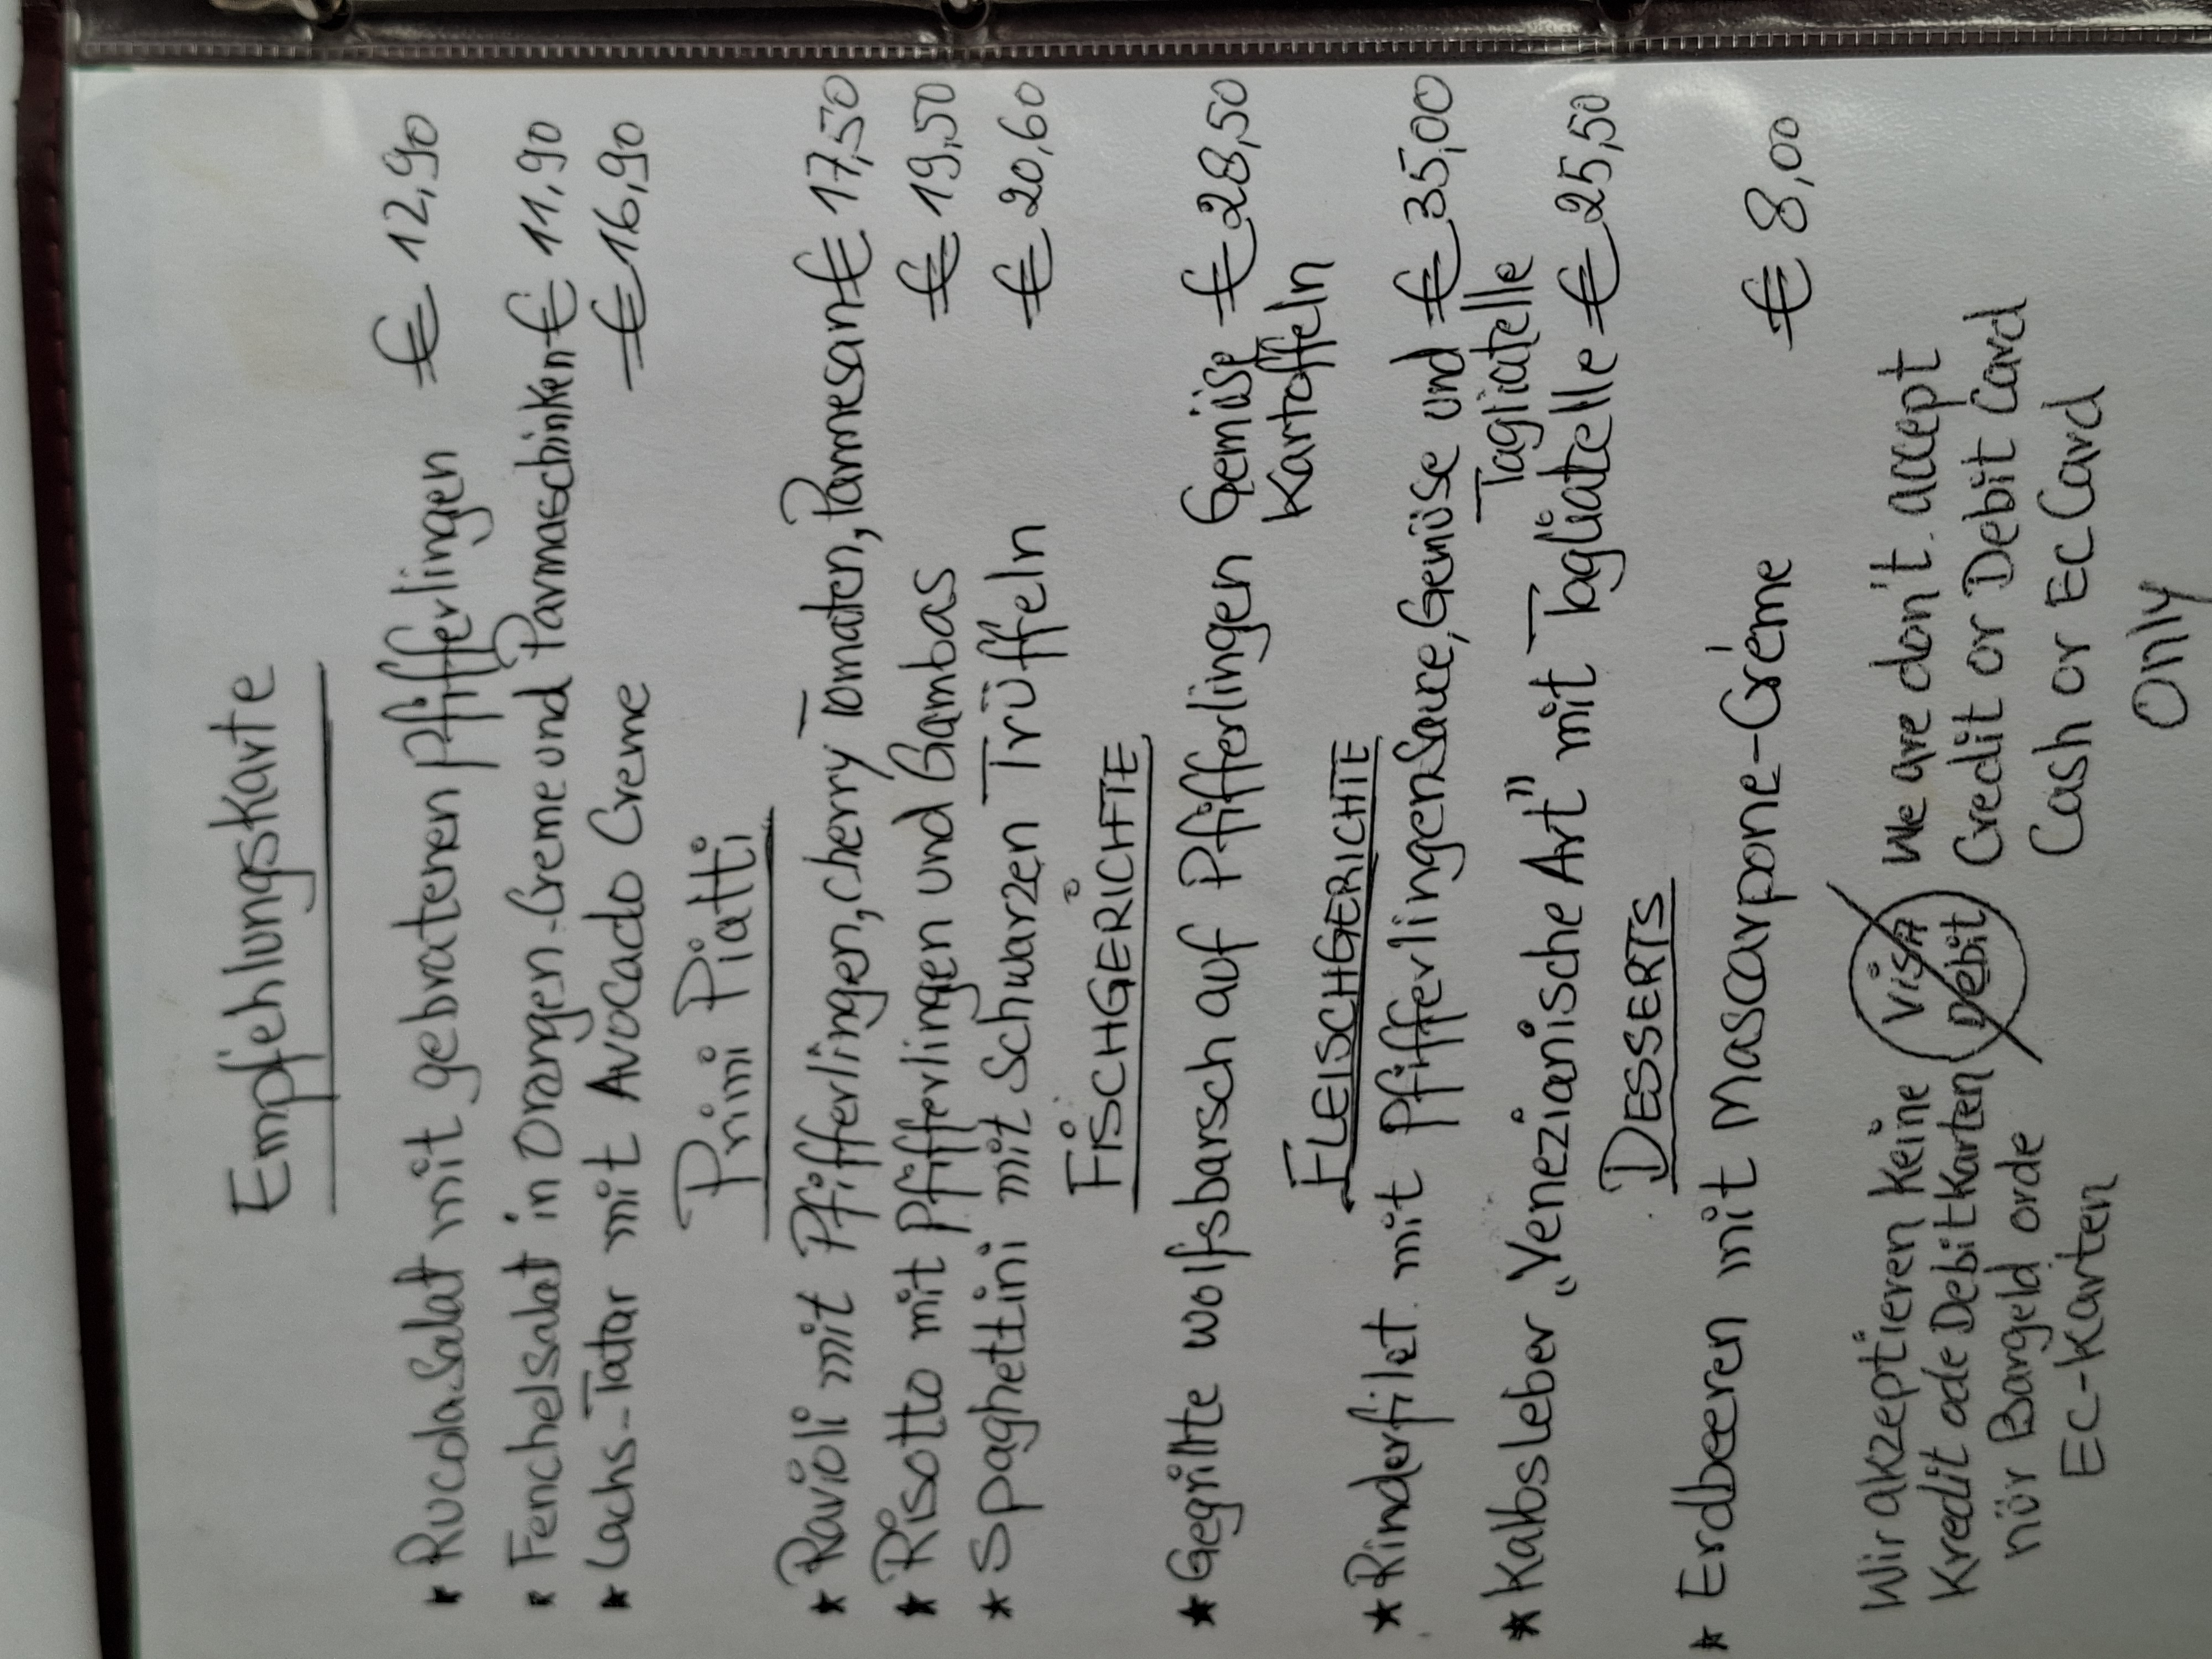 Empfehlungskarte
★ Rucola Salat mit gebratenen Pfifferlingen € 12,90
★ Fenchelsalat in Orangen-Creme und Parmaschinken € 11,90
★ Lachs-Tatar mit Avocado Creme € 16,90
Primi Piatti
★ Ravioli mit Pfifferlingen, cherry Tomaten, Parmesan € 17,50
★ Risotto mit Pfifferlingen und Gambas € 19,50
★ Spaghettini mit Schwarzen Trüffeln € 20,60
FISCHGERICHTE
★ Gegrillte wolfsbarsch auf Pfifferlingen Gemüse € 28,50
Kartoffeln
FLEISCHGERICHTE
★ Rinderfilet mit Pfifferlingen Sauce, Gemüse und € 35,00
Tagliatelle
★ Kabsleber „Venezianische Art" mit Tagliatelle € 25,50
DESSERTS
★ Erdbeeren mit Mascarpone-Créme € 8,00
Wir akzeptieren keine
Kredit ode Debitkarten
nür Bargeld orde
EC-Karten
VISA
Debit
We are don't accept
Credit or Debit Card
Cash or EC Card
Only